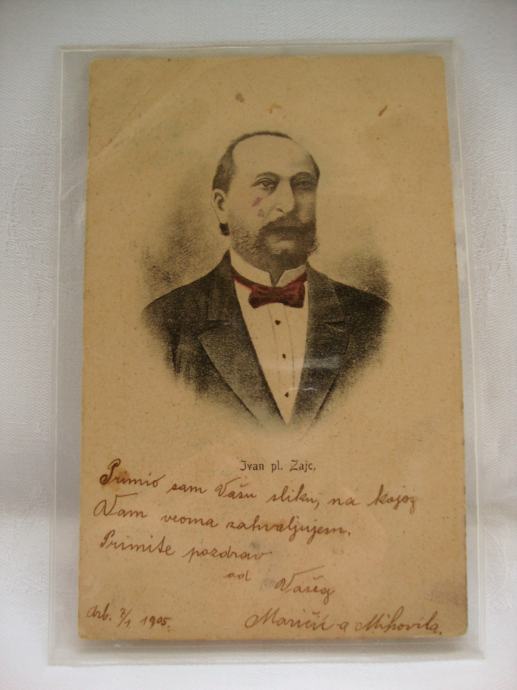 Ivan pl. Zajc,
Primio sam Vašu sliku, na kojoj
Vam veoma zahvaljujem.
Primite pozdrav
od Vašeg
Arb. 7/1 1905.
Maričić a Mihovila.